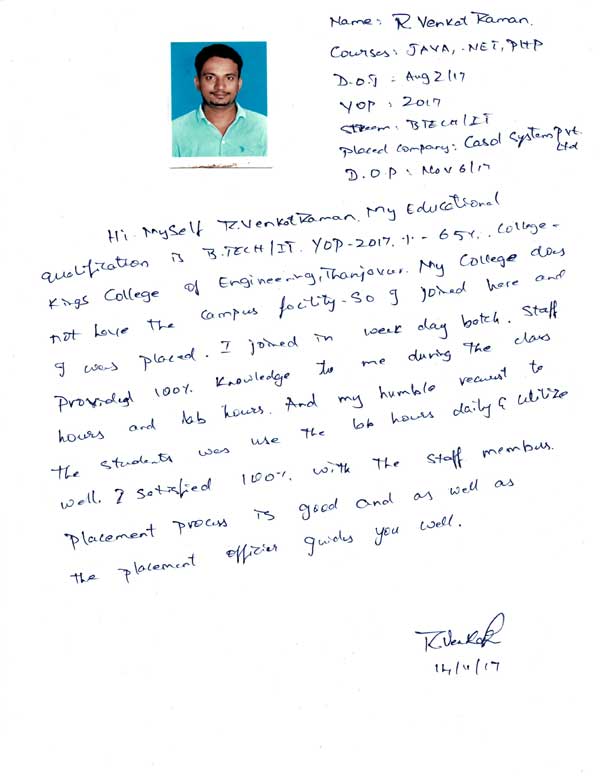 Name: R. Venkat Raman.
Courses: JAVA, .NET, PHP
D.O.J : Aug 2/17
YOP : 2017
Stream: BTECH/IT
Placed company: Casol Systems Pvt. Ltd
D.O.P : Nov 6/17
Hi. Myself R.Venkat Raman. My Educational
qualification is B.TECH/IT. YOP-2017. %- 65%. College-
Kings College of Engineering, Thanjavur. My College does
not have the campus facility. So I joined here and
I was placed. I joined in week day batch. Staff
Provided 100% Knowledge to me during the class
hours and lab hours. And my humble request to
the students was use the lab hours daily & utilize
well. I satisfied 100% with the staff members.
Placement process is good and as well as
the placement officier guides you well.
R.Venkat
14/11/17